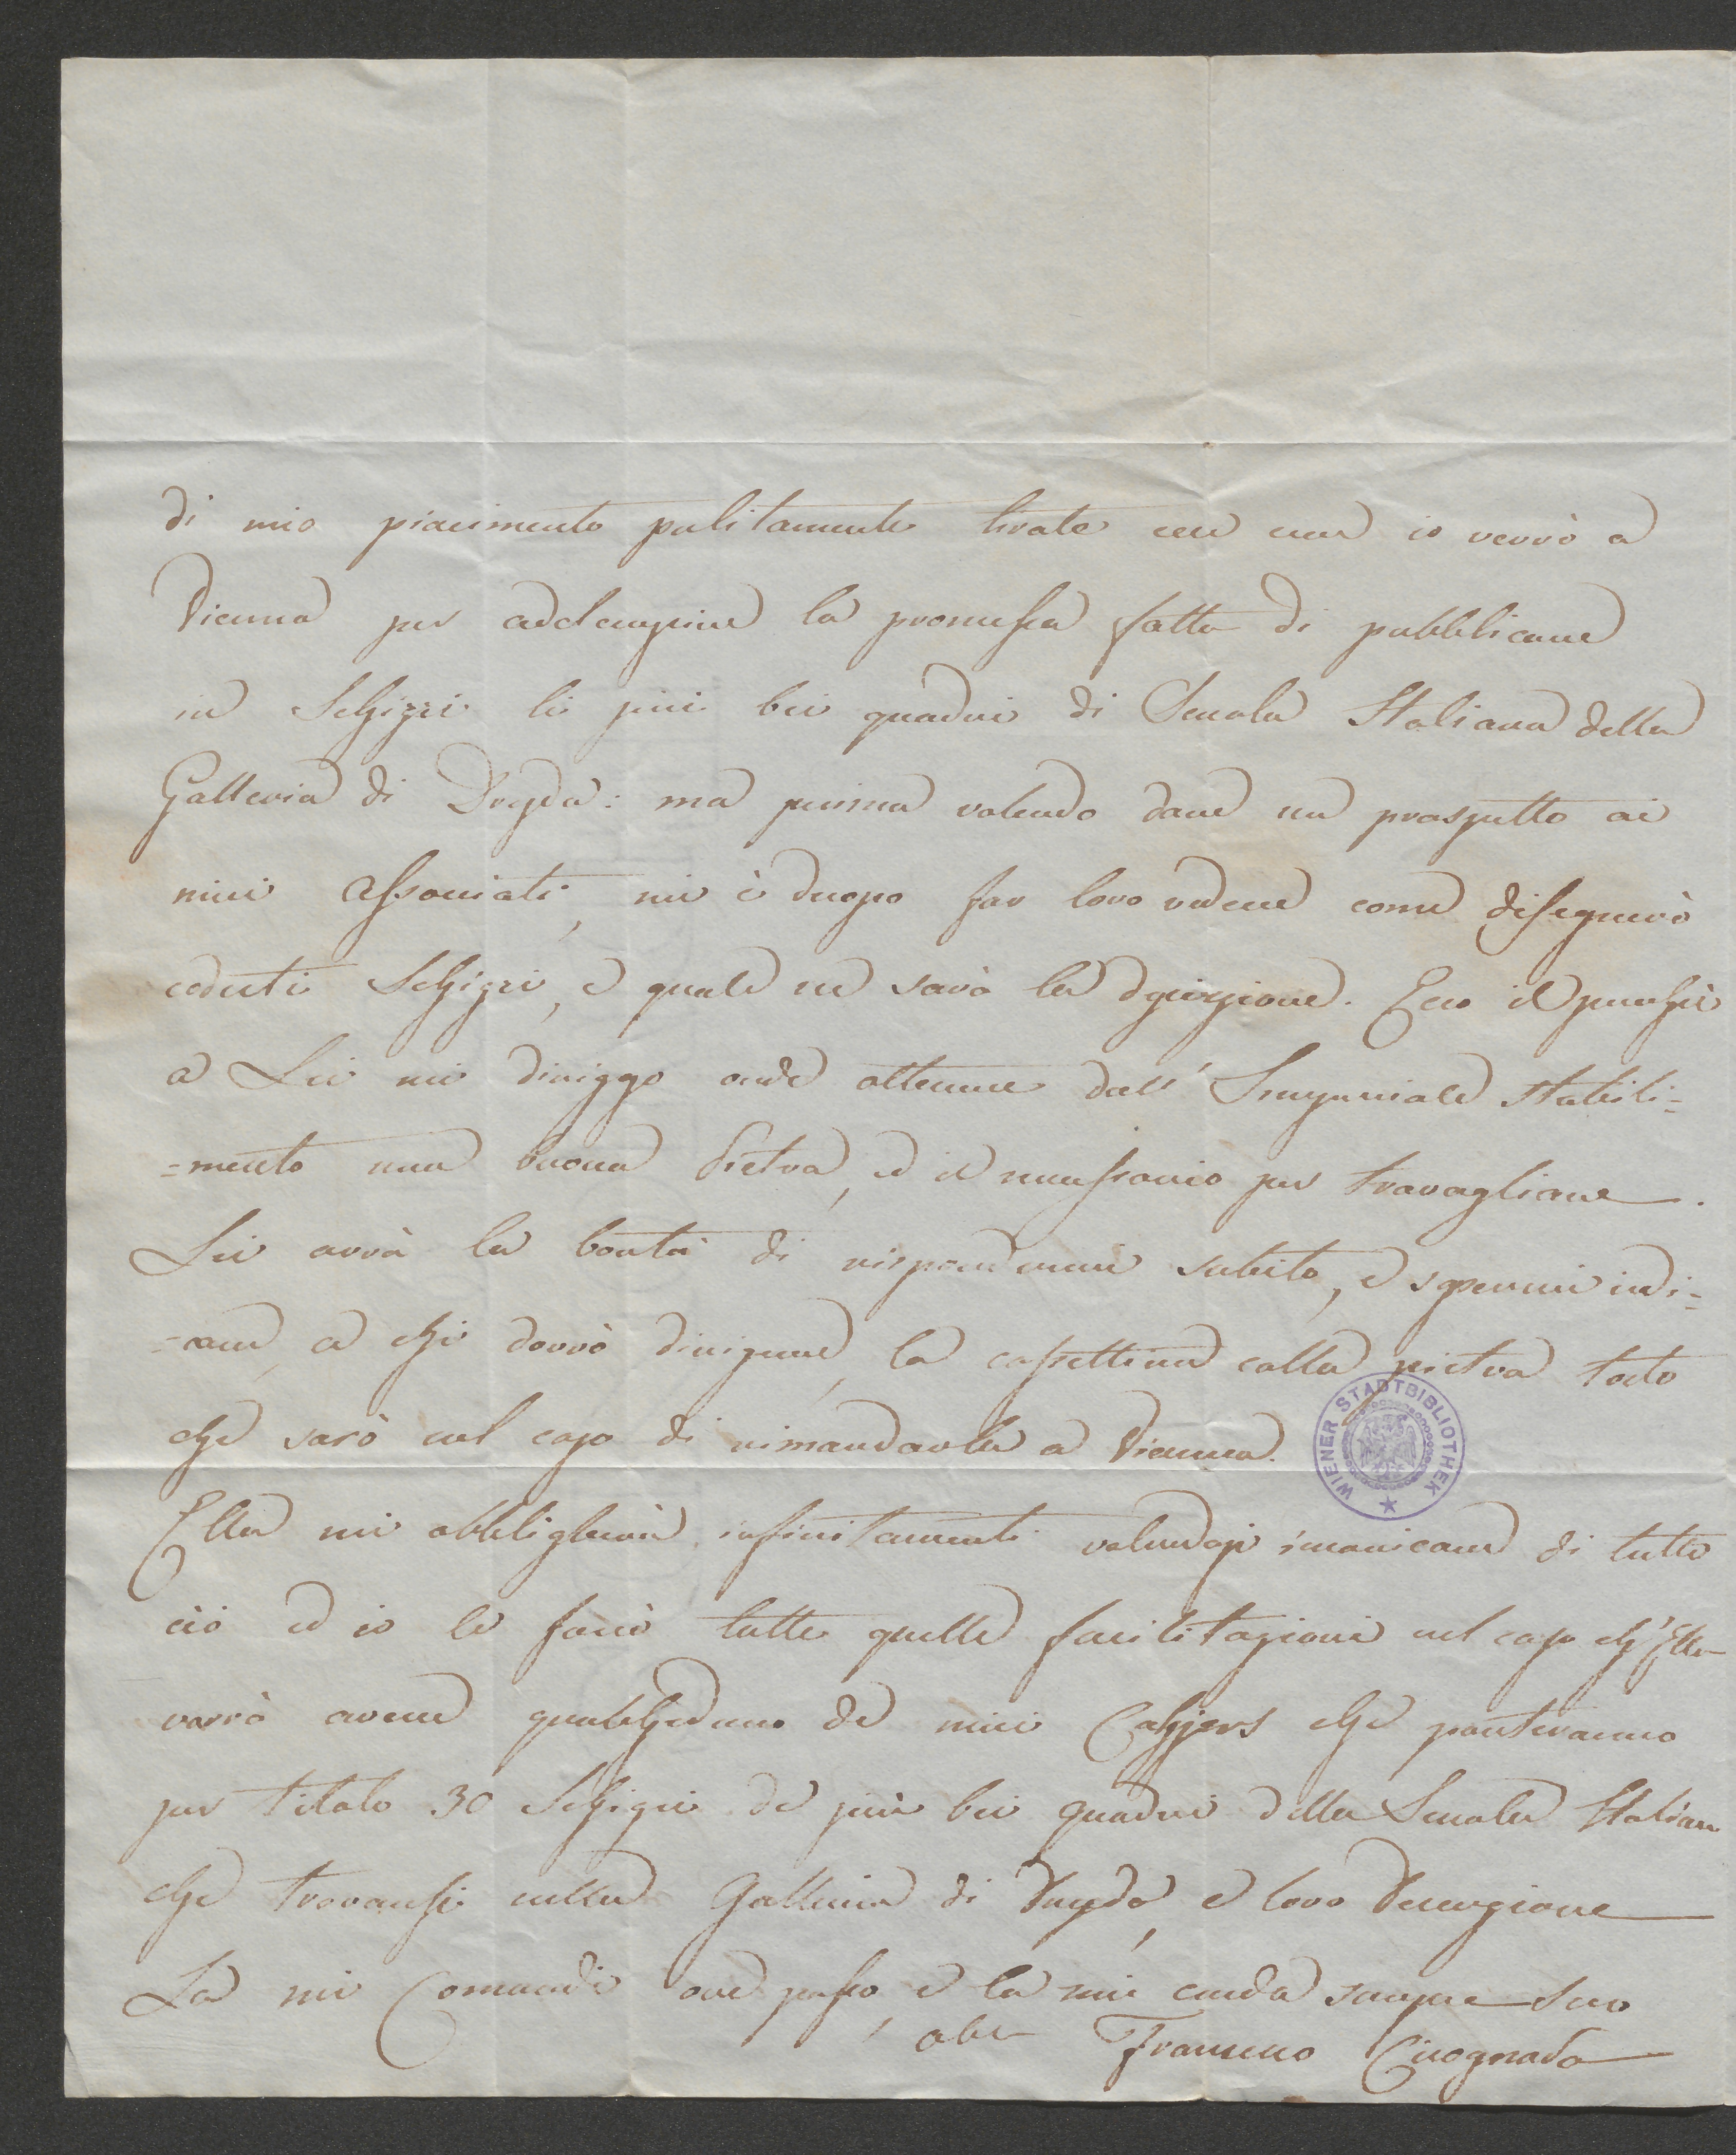 di mio piacimento pulitamente tirate io verrò a
Vienna per adempire la promessa fatta di pubblicare
in Schizzi li più bei quadri di Scuola Italiana della
Galleria di Dresda: ma prima volendo dare un prospetto ai
miei associati, mi è duopo far loro vedere come disegnerò
codesti Schizzi, e quale ne sarà la . Ecco il perchè
a Lei mi diriggo onde ottenere dall' Imperiale Stabili=
=mento una buona Pietra, ed il necessario per travagliare.
Lei avrà la bontà di rispondermi subito, e sapermi indi=
=care, a chi dovrò dirigere, la cassettina colla pietra tosto
che sarò nel caso di rimandarla a Vienna.
Ella mi obbligherà infinitamente volendosi incaricare di tutto
ciò ed io le farò tutte quelle facilitazioni nel caso ch'Ella
vorrà avere qualcheduno de miei Cahjers che porteranno
per titolo 30 Schizzi de più bei quadri della Scuola Italiana
che trovansi nella Galleria di Dresda, e loro Descrizione
La mi Comandi ove posso, e la mi creda sempre Suo
Francesco Cicognara
WIENER STADTBIBLIOTHEK